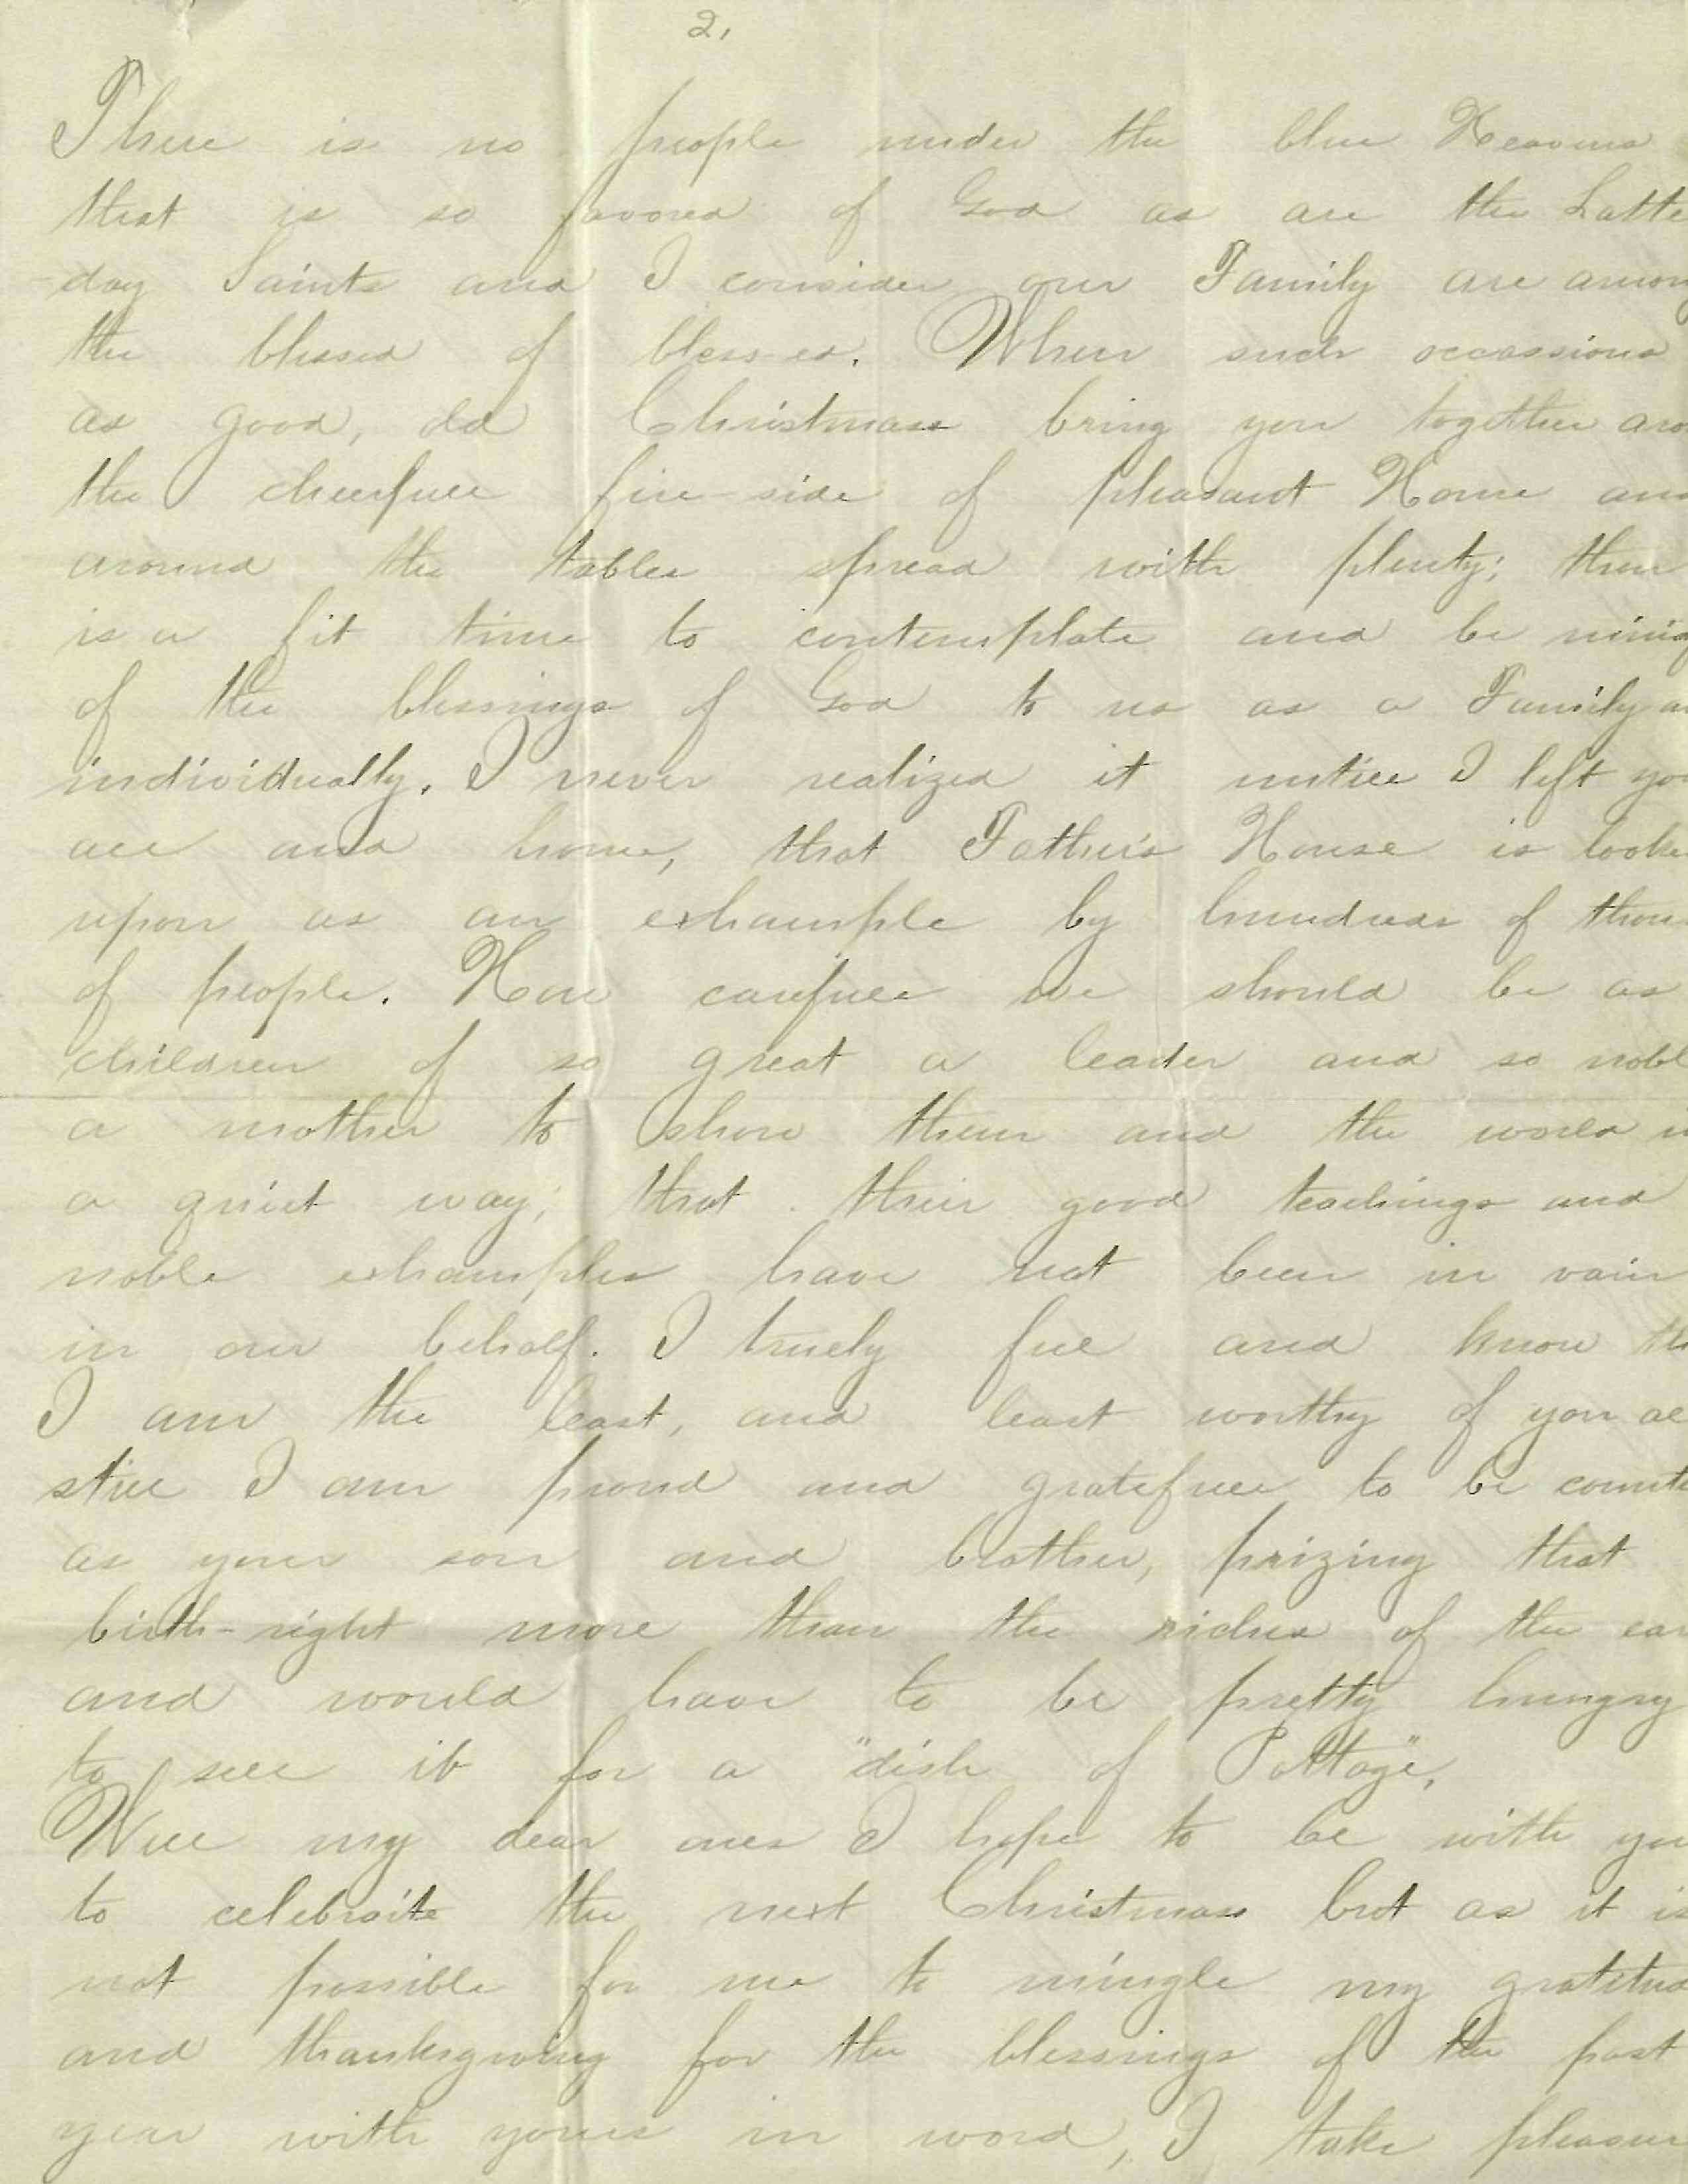 2,
There is no people under the blue Heavens
that is so favored of God as are the Latte
-day Saints and I consider our Family are among
the blessed of bless-ed. When such occassions
as good, old Christmass bring you together aro
the cheerfull fire-side of pleasant Home and
around the tables spread with plenty; then
is a fit time to contemplate and be mind
of the blessings of God to us as a Family an
individually. I never realized it untill I left you
all and home, that Father's House is looke
upon as an exhample by hundreds of thous
of people. How carefull we should be as
children of so great a leader and so nobl
a mother to show them and the world in
a quiet way; that their good teachings and
noble exhamples have not been in vain
in our behalf. I truely feel and know th
I am the least, and least worthy of you al
still I am proud and gratefull to be counte
as your son and brother, prizing that
birth-right more than the riches of the ear
and would have to be pretty hungry
to sell it for a "dish of Pottage".
Well my dear ones I hope to be with you
to celebraite the next Christmass but as it is
not possible for me to mingle my gratitud
and thanksgiving for the blessings of the past
year with yours in word, I take pleasur